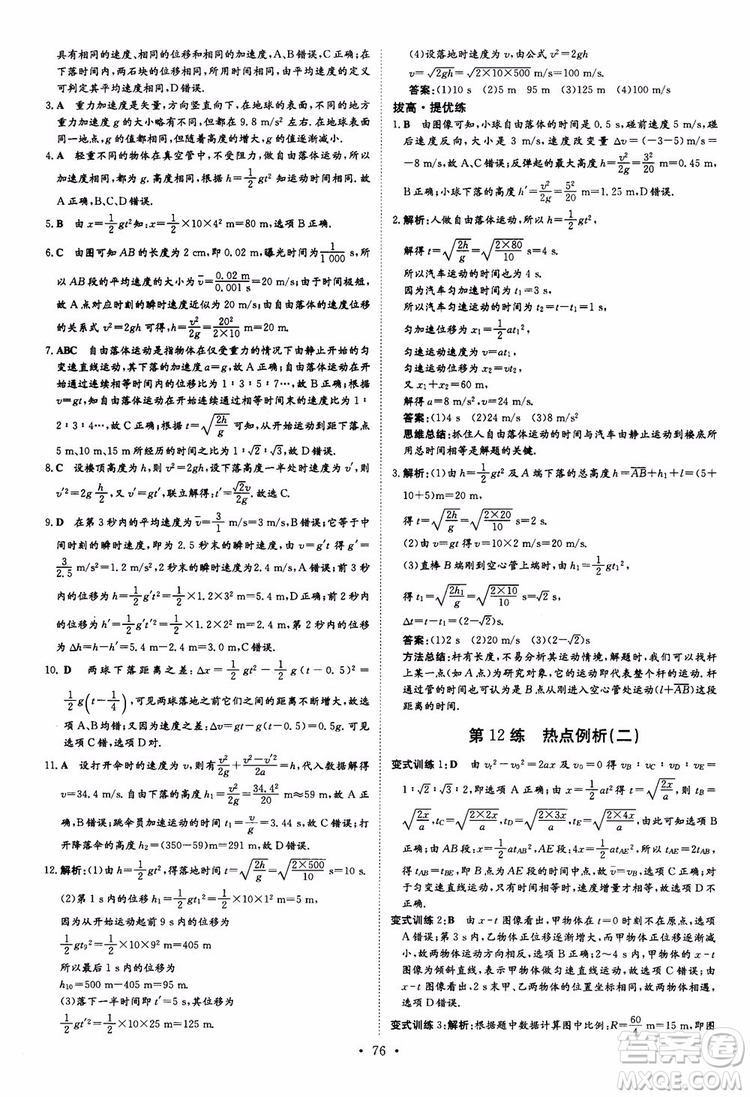 具有相同的速度、相同的位移和相同的加速度,A、B错误,C正确;在
下落时间内,两石块的位移相同,时间相同,由平均速度的定义
可判定其平均速度相同,D错误.
3. A 重力加速度是矢量,方向竖直向下,在地球的表面,不同的地
方重力加速度g的大小略有不同,但都在9.8 m/s²左右.在地球
表面同一地点,g的值都相同,但随着高度的增大,g的值逐渐变小.
4. A 轻重不同的物体在真空管中,不受阻力,做自由落体运动,加
速度都为重力加速度,高度相同,根据h=1/2gt²知运动时间相同.
5. B 由x=1/2gt²知:x=1/2×10×4² m=80 m,选项B正确.
6. C 由图可知AB的长度为2 cm,即0.02 m,曝光时间为1/1 000 s,
所以AB段的平均速度的大小为v̄=0.02 m/0.001 s=20 m/s;由于时间极短,
故A点对应时刻的瞬时速度近似为20 m/s,由自由落体的速度位移
的关系式v²=2gh可得h=v²/2g=20²/(2×10) m=20 m,C正确.
7. ABC 自由落体运动是指物体在仅受重力的情况下由静止开始的匀
变速直线运动,其下落的加速度为g,A正确;自由落体运动在开
始连续相等时间内的位移之比为1∶3∶5∶7…,B正确;在自由落
体运动开始后连续相等时间末的速度之比为1∶
2∶3∶4…,C正确;根据t=√(2h/g)可知,从开始运动到距下落点
5 m、10 m、15 m所经历的时间之比为1∶√2∶√3,D错误.
8. C 设楼顶高度为h,物体下落至楼层一半处时速度为v′,则v²=2gh,
v′²=2g h/2,v=gt,v′=gt′,联立解得:t′=√2v/2g,故选C.
9. D 在第3秒内的平均速度为v̄=3/1 m/s=3 m/s,A错误;它等于中
间时刻的瞬时速度,即为2.5秒末的瞬时速度,由v=g′t得g′=
3/2.5 m/s²=1.2 m/s²,2秒末速度为v=g′t=2.4 m/s,B错误;1秒
内的位移为h=1/2g′t²=1/2×1.2×1² m=0.6 m,C错误;前2秒
内的位移为h′=1/2g′t²=1/2×1.2×2² m=2.4 m,第2个1秒内
的位移为h−h′=1.8 m,D正确.
10. D 两球下落距离之差:Δx=1/2gt²−1/2g(t−0.5)²=
1/2g(t−1/4),可见,两球落地之前它们之间的距离不断增大,选项
A、B均错;又因为速度之差:Δv=gt−g(t−0.5)=0.5g,可见,
选项C错、选项D正确.
11. A 设打开伞时的速度为v,则有v²/2g+(v²−v₀²)/2a=h,代入数据解得:
v=34.4 m/s,自由落体运动的高度h₁=v²/2g=34.4²/20 m≈59 m,则
B、C错误;跳伞员加速运动的时间t₁=v/g=3.44 s,故D错误;打
开降落伞的高度为h₂=(350−59) m=291 m,故A正确.
12. 解析:(1)由h=1/2gt²,得落地时间t=√(2h/g)=√(2×500/10) s=10 s.
(2)第1 s内的位移h₁=1/2gt₁²=1/2×10×1² m=5 m
因为从开始运动起前9 s内的位移为
1/2gt₉²=1/2×10×9² m=405 m
所以最后1 s内的位移为
h₁₀=500 m−405 m=95 m
(3)落下一半时间即t′=5 s,其位移为
1/2gt²=1/2×10×25 m=125 m
(4)设落地时速度为v,由公式v²=2gh得
v=√2gh=√(2×10×500) m/s=100 m/s.
答案:(1)10 s (2)5 m 95 m (3)125 m (4)100 m/s
拔高·提优练
1. B 由图象可知,小球自由落体的时间是0.5 s,碰前速度与碰撞
后速度反向,大小不等,速度改变量Δv=(−3−5) m/s=
−8 m/s,故A、C错误;反弹起的最大高度h=v²/2g=3²/20 m=
0.45 m;小球下落高度h′=v²/2g=5²/20 m=1.25 m,故B正确,D错误.
2. 解析:人做自由落体运动,由公式h=1/2gt²,
解得t=√(2h/g)=√(2×80/10) s=4 s
所以汽车运动的时间t=4 s−1 s=3 s,
因为汽车匀加速运动的时间t₁=3 s,
所以汽车匀速运动的时间为t₂=t−t₁=1 s,
匀加速位移x₁=1/2at₁²
匀速运动速度v=at₁
匀速运动位移x₂=vt₂
又x₁+x₂=60 m,
解得a=8 m/s²,v=24 m/s.
答案:(1)4 s (2)8 m/s² 24 m/s
思维总结:抓住人自由落体运动的时间与汽车由开始运动至楼底所
用总时间的关系是解题的关键.
3. 解析:(1)由h=1/2gt²及A端下落的总高度h=AB+l=(5+
10+5)m=20 m,
得t=√(2h/g)=√(2×20/10) s=2 s.
(2)由v=gt得v=20 m/s.
(3)直棒B端刚到空心管上端时,由h₁=1/2gt₁²,
得t₁=√(2h₁/g)=√(2×10/10) s=√2 s,
Δt=t−t₁=(2−√2) s.
答案:(1)2 s (2)20 m/s (3)(2−√2)s
方法总结:杆有长度,不易分析其运动情境,解题时,我们可以找杆
上某一点(如A点),该点的运动代表整个杆的运动.如该题中杆
通过管的时间即为A点从B刚进入空心管处运动(l+AB)这段
距离的时间.
第12练 热点例析(二)
变式训练1:D 由vₜ²−v₀²=2ax及v₀=0得v_B∶v_C∶v_D∶v_E=
1∶√2∶√3∶2,选项A正确;由x=1/2at²得t=√(2x/a),则t_AB=
√(2x/a),t_AC=√(2×2x/a),t_AD=√(2×3x/a),t_AE=√(2×4x/a),选项B
正确;由以上可知,AE段:v̄=v_E/2=v_B,选项C正确;由于t_AE=
2t_AB,故t_AB=t_BE,即B点为AE段的时间中点,选项D错误.对
于匀变速直线运动,任何一段的平均速度等于该段时间中点的瞬
时速度.
变式训练2:B 由x-t图像看出,甲物体在t=0时刻开始运动,选项
A错误;第3 s内,乙物体正向位移逐渐增大,而甲物体正向位移逐渐减
小,选项B正确,选项C错误;由x-t图像看出,甲、乙两物体的
图像为倾斜直线,甲、乙两物体都做匀速直线运动,但不是同时开始
运动,选项D错误.
变式训练3:解析:根据题中数据计算图中比例:R=60/4 m=15 m,即图
76
精彩圈
MVP